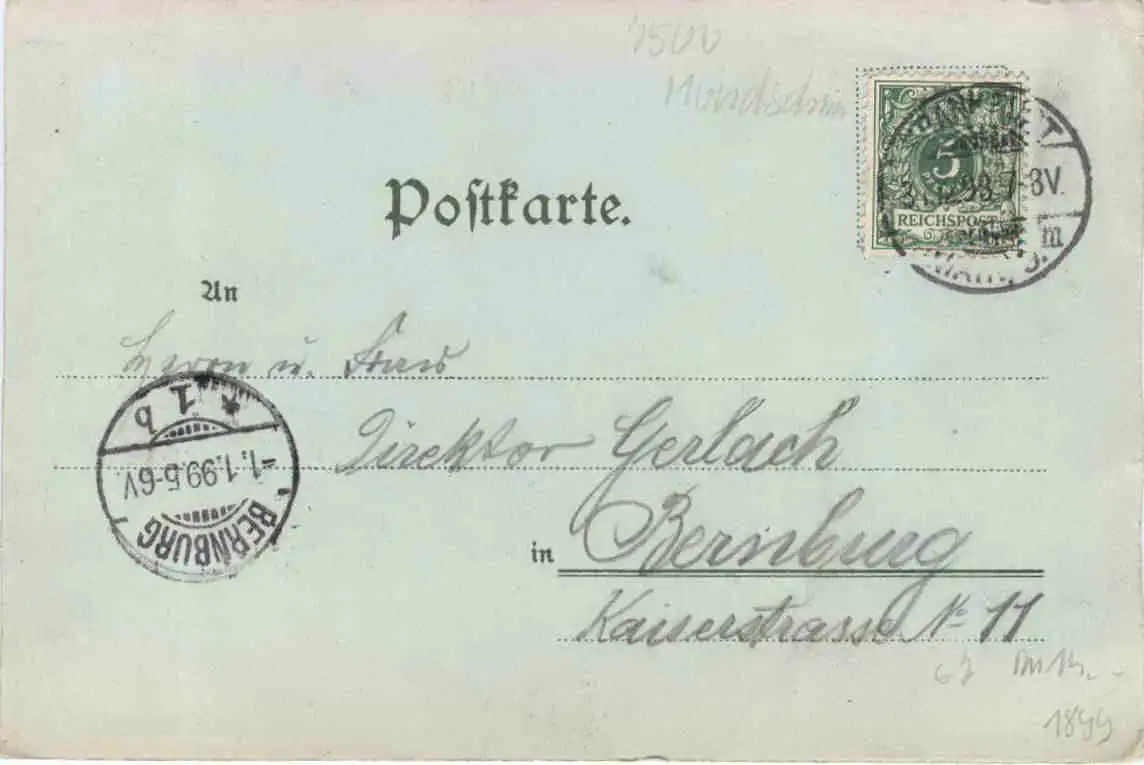 1500
Mondschein
Postkarte.
5
REICHSPOST
7-8V.
m
An
Herrn u. Frau
Direktor Gerlach
in Bernburg
Kaiserstrasse No 11
* 1 b
-1.1.99.5-6V.
BERNBURG
1899